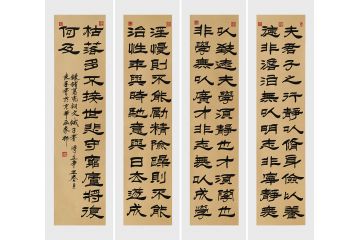 夫君子之行静以修身儉以養
德非澹泊無以明志非寧静無
以致遠夫學須静也才須學也
非學無以廣才非志無以成學
淫慢則不能勵精險躁則不能
治性年與時馳意與日去遂成
枯落多不接世悲守窮廬將復
何及
諸葛亮